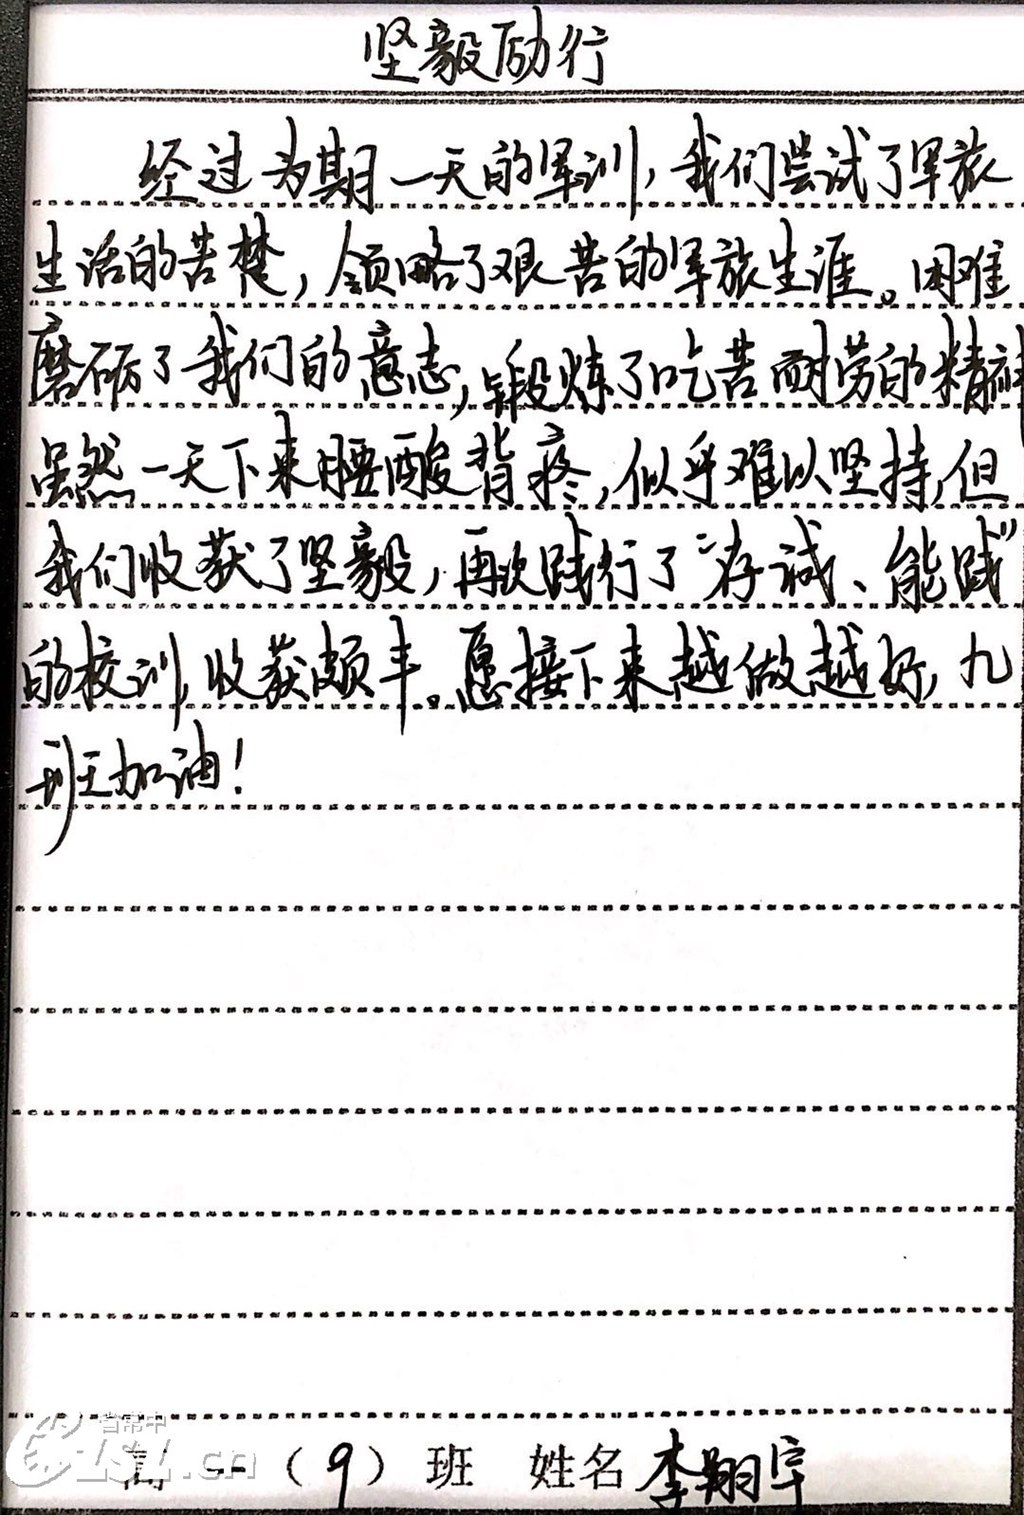 坚毅励行
经过为期一天的军训，我们尝试了军旅
生活的苦楚，领略了艰苦的军旅生涯。困难
磨砺了我们的意志，锻炼了吃苦耐劳的精神
虽然一天下来腰酸背疼，似乎难以坚持，但
我们收获了坚毅，再次践行了“存诚、能贱”
的校训，收获颇丰。愿接下来越做越好，九
班加油！
省常中
CZSSZ.cn
高一（9）班 姓名 李翔宇